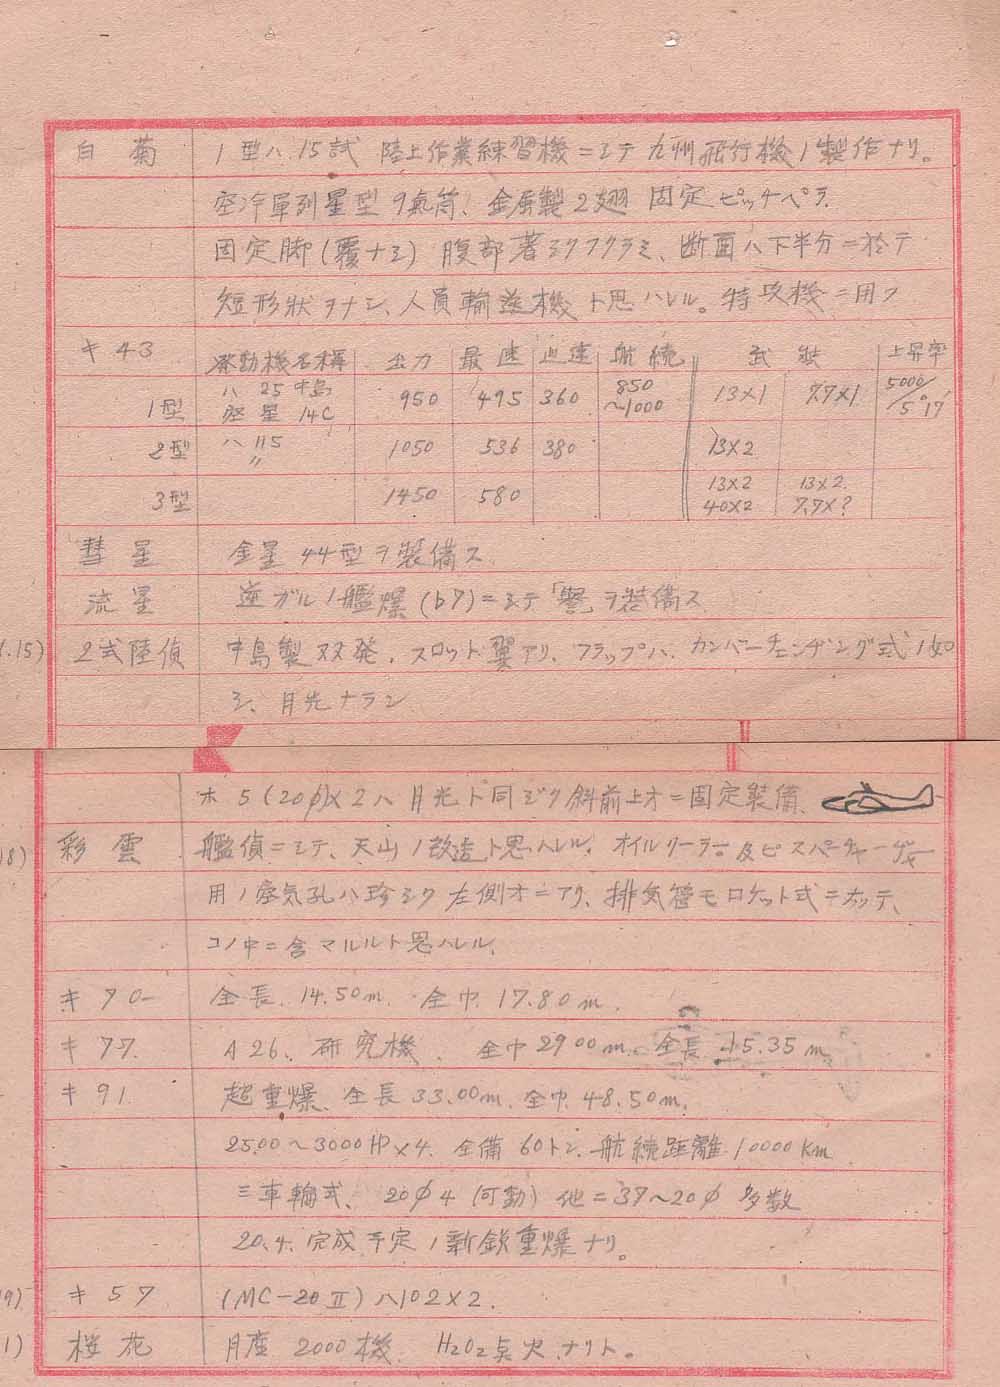 白菊 1型ハ.15試 陸上作業練習機ニシテ九州飛行機ノ製作ナリ。
空冷単列星型9気筒、金属製2翅 固定ピッチペラ.
固定脚(覆ナシ) 腹部著シクフクラミ、断面ハ下半分ニ於テ
短形状ヲナシ、人員輸送機ト思ハレル。特攻機ニ用フ
キ43 発動機名称 出力 最速 巡速 航続 武装 上昇率
1型 ハ25中島 空星14C 950 495 360 850~1000 13×1 7.7×1 5000/5'17
2型 ハ115 〃 1050 536 380 13×2
3型 1450 580 13×2 13×2
40×2 7.7×?
彗星 金星44型ヲ装備ス.
流星 逆ガルノ艦爆(b7)ニシテ「誉」ヲ装備ス
.15) 2式陸偵 中島製双発.スロット翼アリ、フラップハ、カンバーチェンヂング式ノ如
シ、月光ナラン
ホ5(20φ)×2ハ月光ト同ジク斜前上方ニ固定装備、
8) 彩雲 艦偵ニシテ、天山ノ改造ト思ハレル.オイルクーラー及ビスパーチャーヂャー
用ノ空気孔ハ珍シク左側方ニアリ、排気管モロケット式ニナッテ、
コノ中ニ含マルルト思ハレル.
キ70 全長.14.50m.全巾.17.80m.
キ77. A26、研究機、全巾2900m.全長15.35m
キ91. 超重爆、全長33.00m.全巾.48.50m.
2500~3000HP×4.全備60トン.航続距離10000Km
三車輪式、20φ4(可動)他ニ37~20φ多数
20.4.完成予定ノ新鋭重爆ナリ。
9) キ57 (MC-20Ⅱ) ハ102×2.
1) 桜花 月産2000機.H2O2点火ナリト。